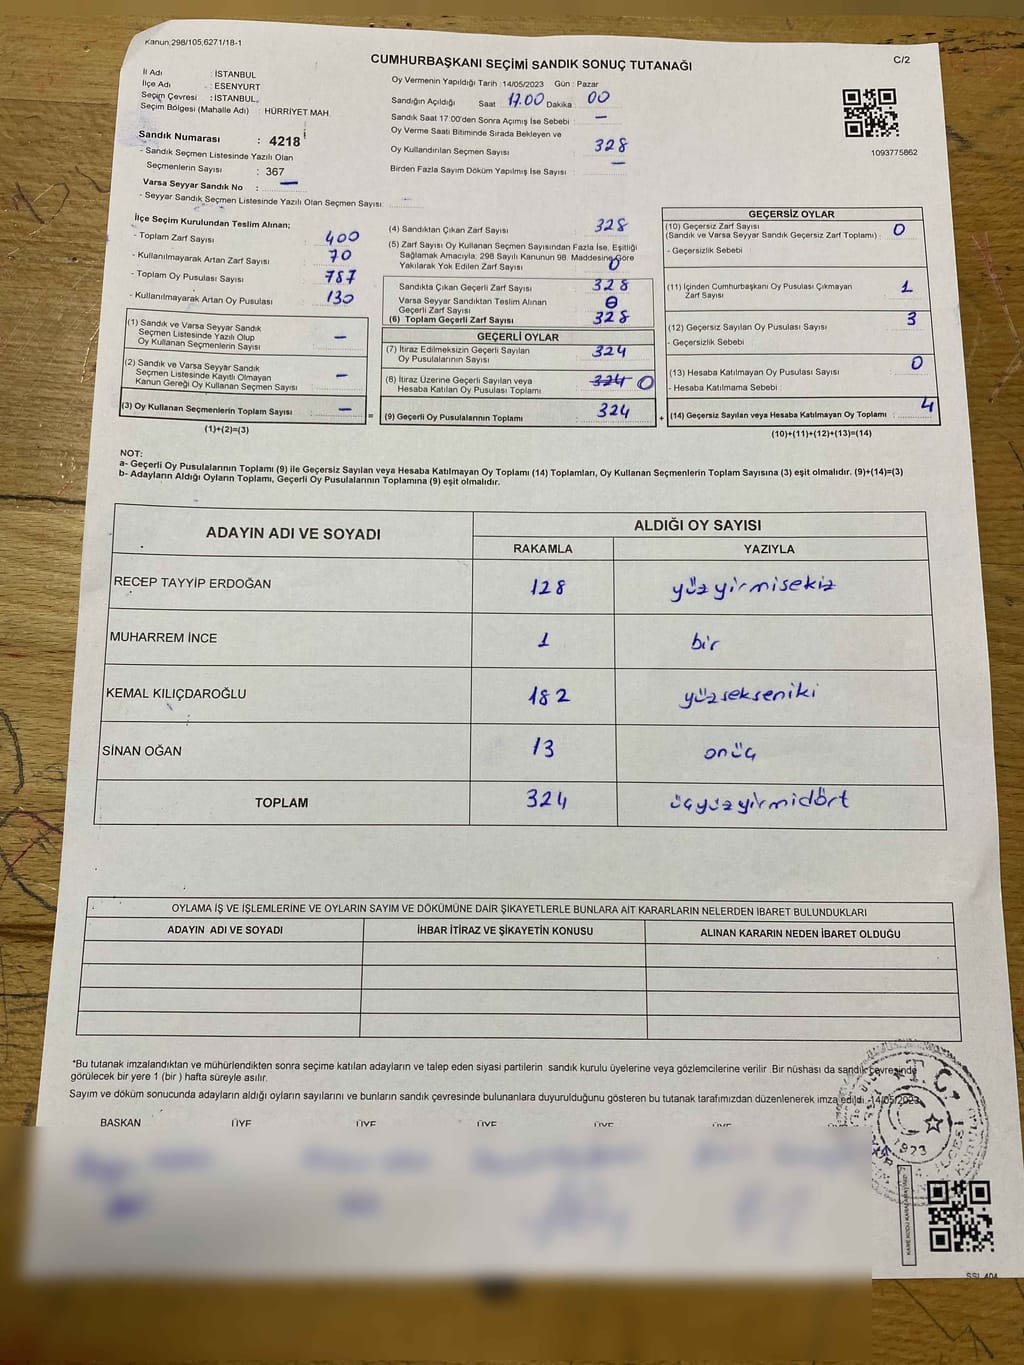 Kanun,298/105,6271/18-1
C/2
CUMHURBAŞKANI SEÇİMİ SANDIK SONUÇ TUTANAĞI
İl Adı : İSTANBUL
İlçe Adı : ESENYURT
Seçim Çevresi : İSTANBUL
Seçim Bölgesi (Mahalle Adı) : HÜRRİYET MAH
Sandık Numarası : 4218
- Sandık Seçmen Listesinde Yazılı Olan
Seçmenlerin Sayısı : 367
Varsa Seyyar Sandık No : —
- Seyyar Sandık Seçmen Listesinde Yazılı Olan Seçmen Sayısı
Oy Vermenin Yapıldığı Tarih :14/05/2023 Gün : Pazar
Sandığın Açıldığı Saat 17.00 Dakika 00
Sandık Saat 17:00'den Sonra Açımış İse Sebebi : —
Oy Verme Saati Bitiminde Sırada Bekleyen ve
Oy Kullandırılan Seçmen Sayısı : 328
Birden Fazla Sayım Döküm Yapılmış İse Sayısı : —
1093775862
İlçe Seçim Kurulundan Teslim Alınan;
- Toplam Zarf Sayısı : 400
- Kullanılmayarak Artan Zarf Sayısı : 70
- Toplam Oy Pusulası Sayısı : 787
- Kullanılmayarak Artan Oy Pusulası : 130
(1) Sandık ve Varsa Seyyar Sandık
Seçmen Listesinde Yazılı Olup
Oy Kullanan Seçmenlerin Sayısı : —
(2) Sandık ve Varsa Seyyar Sandık
Seçmen Listesinde Kayıtlı Olmayan
Kanun Gereği Oy Kullanan Seçmen Sayısı : —
(3) Oy Kullanan Seçmenlerin Toplam Sayısı : — =
(1)+(2)=(3)
(4) Sandıktan Çıkan Zarf Sayısı : 328
(5) Zarf Sayısı Oy Kullanan Seçmen Sayısından Fazla İse, Eşitliği
Sağlamak Amacıyla, 298 Sayılı Kanunun 98. Maddesine Göre
Yakılarak Yok Edilen Zarf Sayısı : 0
Sandıkta Çıkan Geçerli Zarf Sayısı : 328
Varsa Seyyar Sandıktan Teslim Alınan
Geçerli Zarf Sayısı : 0
(6) Toplam Geçerli Zarf Sayısı : 328
GEÇERLİ OYLAR
(7) İtiraz Edilmeksizin Geçerli Sayılan
Oy Pusulalarının Sayısı : 324
(8) İtiraz Üzerine Geçerli Sayılan veya
Hesaba Katılan Oy Pusulası Toplamı : 324 0
(9) Geçerli Oy Pusulalarının Toplamı : 324 +
GEÇERSİZ OYLAR
(10) Geçersiz Zarf Sayısı
(Sandık ve Varsa Seyyar Sandık Geçersiz Zarf Toplamı) : 0
- Geçersizlik Sebebi :
(11) İçinden Cumhurbaşkanı Oy Pusulası Çıkmayan
Zarf Sayısı : 1
(12) Geçersiz Sayılan Oy Pusulası Sayısı : 3
- Geçersizlik Sebebi :
(13) Hesaba Katılmayan Oy Pusulası Sayısı : 0
- Hesaba Katılmama Sebebi :
(14) Geçersiz Sayılan veya Hesaba Katılmayan Oy Toplamı : 4
(10)+(11)+(12)+(13)=(14)
NOT:
a- Geçerli Oy Pusulalarının Toplamı (9) ile Geçersiz Sayılan veya Hesaba Katılmayan Oy Toplamı (14) Toplamları, Oy Kullanan Seçmenlerin Toplam Sayısına (3) eşit olmalıdır. (9)+(14)=(3)
b- Adayların Aldığı Oyların Toplamı, Geçerli Oy Pusulalarının Toplamına (9) eşit olmalıdır.
ADAYIN ADI VE SOYADI ALDIĞI OY SAYISI
RAKAMLA YAZIYLA
RECEP TAYYİP ERDOĞAN 128 yüzyirmisekiz
MUHARREM İNCE 1 bir
KEMAL KILIÇDAROĞLU 182 yüzsekseniki
SİNAN OĞAN 13 onüç
TOPLAM 324 üçyüzyirmidört
OYLAMA İŞ VE İŞLEMLERİNE VE OYLARIN SAYIM VE DÖKÜMÜNE DAİR ŞİKAYETLERLE BUNLARA AİT KARARLARIN NELERDEN İBARET BULUNDUKLARI
ADAYIN ADI VE SOYADI İHBAR İTİRAZ VE ŞİKAYETİN KONUSU ALINAN KARARIN NEDEN İBARET OLDUĞU
*Bu tutanak imzalandıktan ve mühürlendikten sonra seçime katılan adayların ve talep eden siyasi partilerin sandık kurulu üyelerine veya gözlemcilerine verilir. Bir nüshası da sandık çevresinde
görülecek bir yere 1 (bir) hafta süreyle asılır.
Sayım ve döküm sonucunda adayların aldığı oyların sayılarını ve bunların sandık çevresinde bulunanlara duyurulduğunu gösteren bu tutanak tarafımızdan düzenlenerek imza edildi. 14/05/2023
BAŞKAN ÜYE ÜYE ÜYE ÜYE ÜYE
T.C.
1923
SSI 404